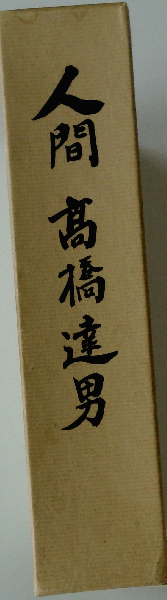 人間 髙橋達男